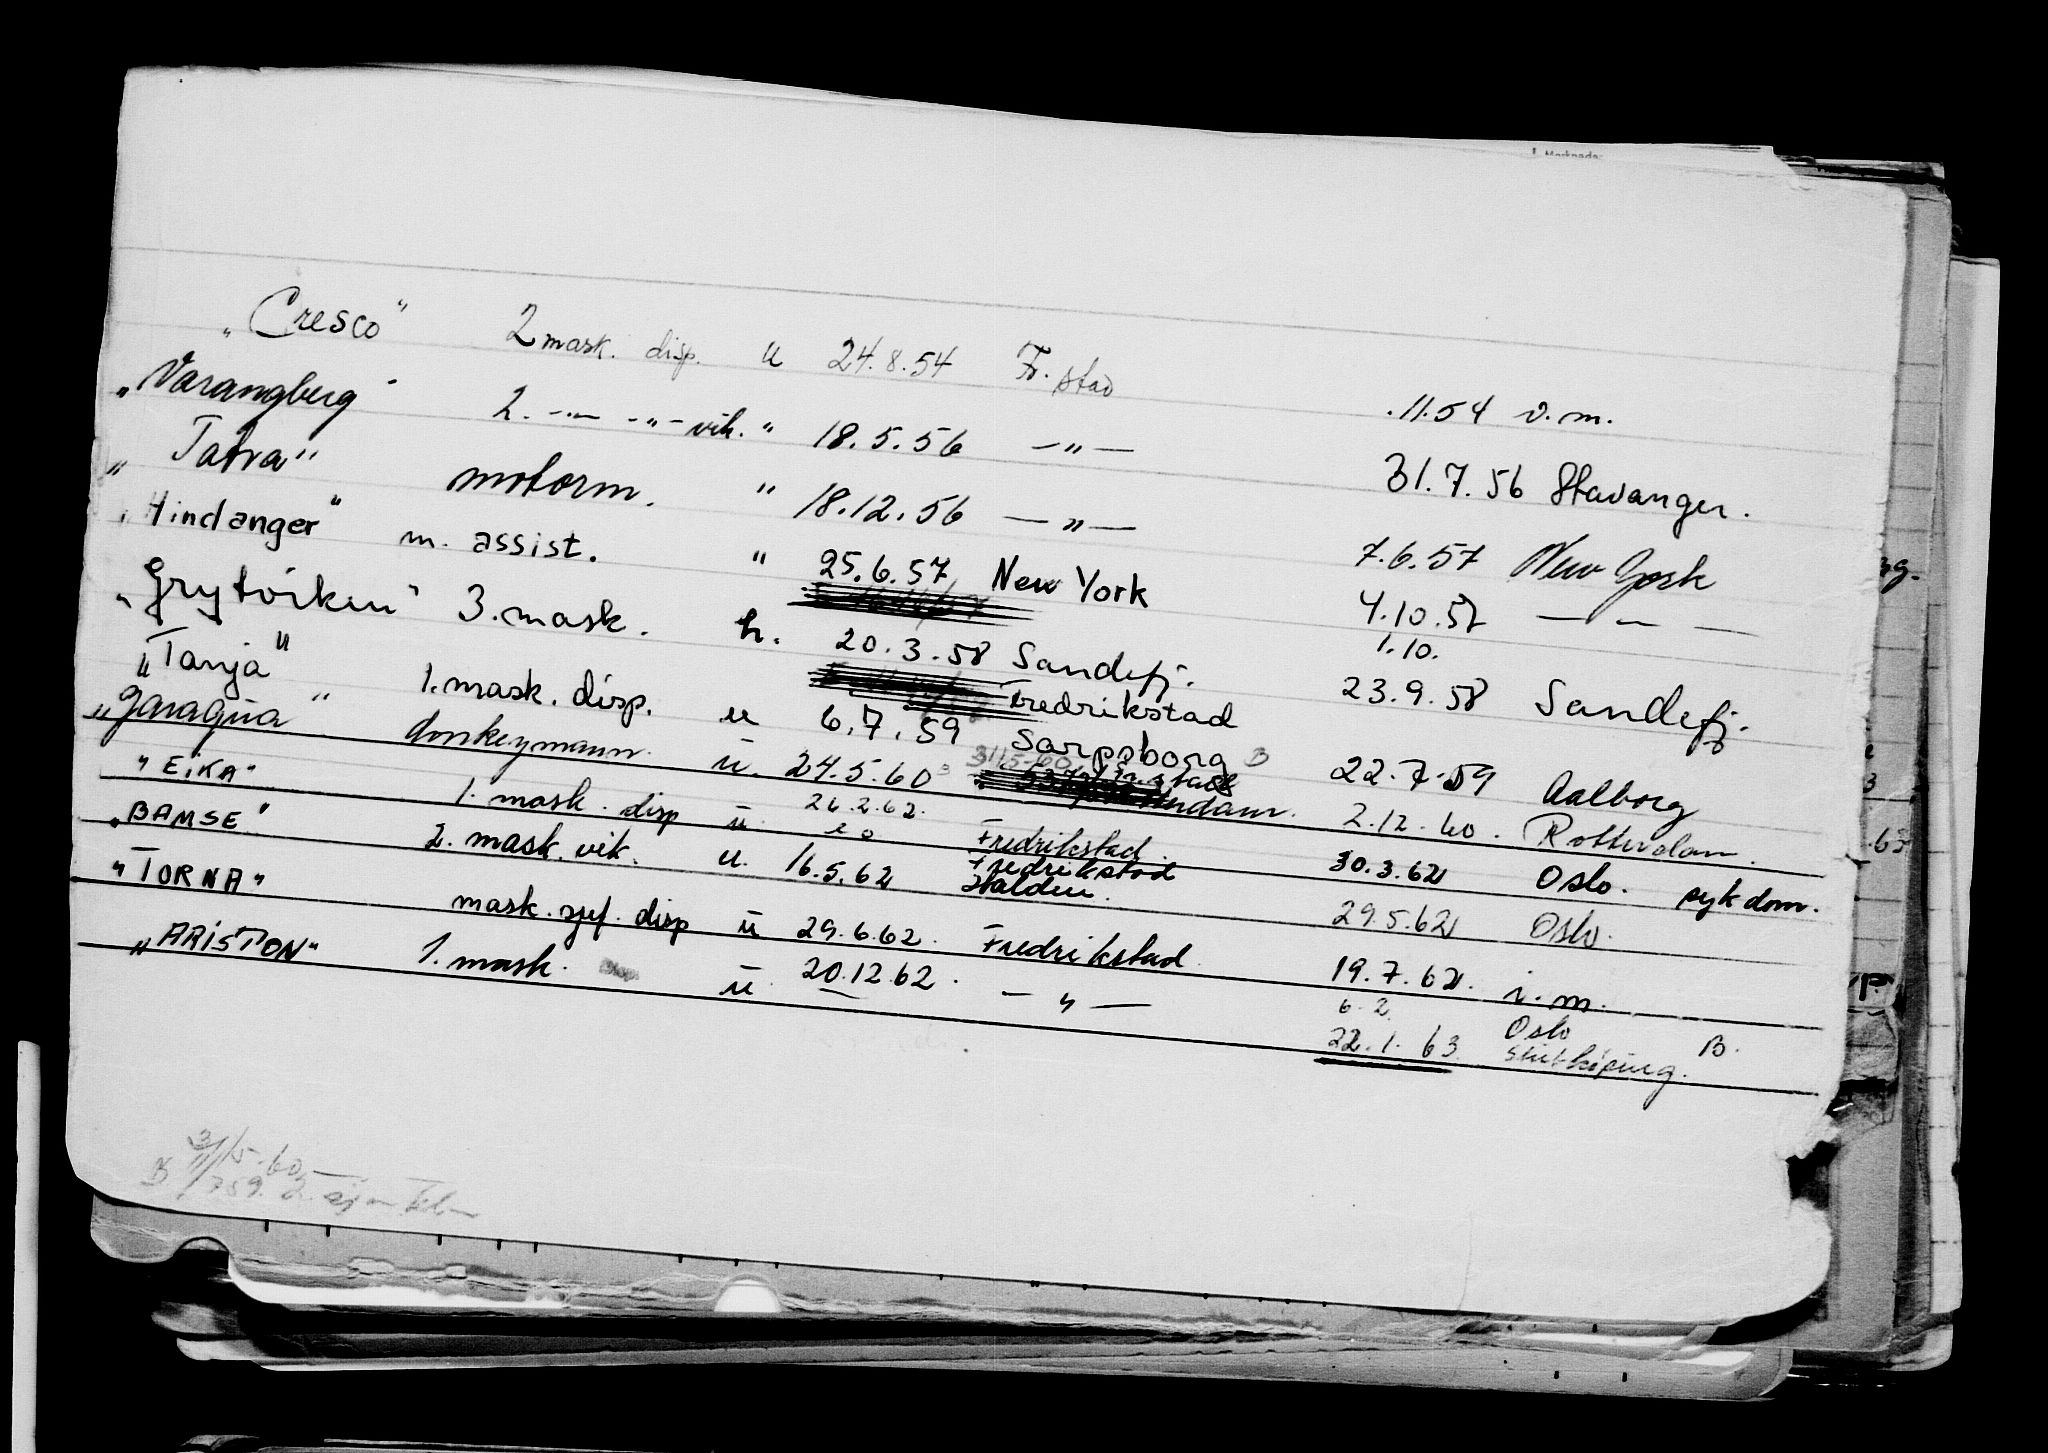 "Cresco" 2 mask. disp. u 24.8.54 Fr. stad .11.54 v.m.
"Varangberg" 2. -"- -"- vik. " 18.5.56 -"- 31.7.56 Stavanger.
"Tatra" motorm. " 18.12.56 -"- 7.6.57 New York
"Hindanger" m. assist. " 25.6.57 New York 4.10.57 - - -
1.10.
"Grytviken" 3. mask. h. 20.3.58 Sandefj. 23.9.58 Sandefj.
Fredrikstad
"Tanja" 1. mask. disp. u 6.7.59 Sarpsborg B 22.7.59 Aalborg
"Garagua" donkeymann u. 24.5.60 2.12.60. Rotterdam.
"EIKA" 1. mask. disp u. 26.2.62. Fredrikstad 30.3.62 Oslo. sykdom.
Fredrikstad
"BAMSE" 2. mask. vik. u. 16.5.62 Halden. 29.5.62 Oslo.
"TORNA" mask. sjef. disp u 29.6.62. Fredrikstad 19.7.62. i.m.
6.2. Oslo B.
"ARISTON" 1. mask. u 20.12.62. -"- 22.1.63
3/5.60